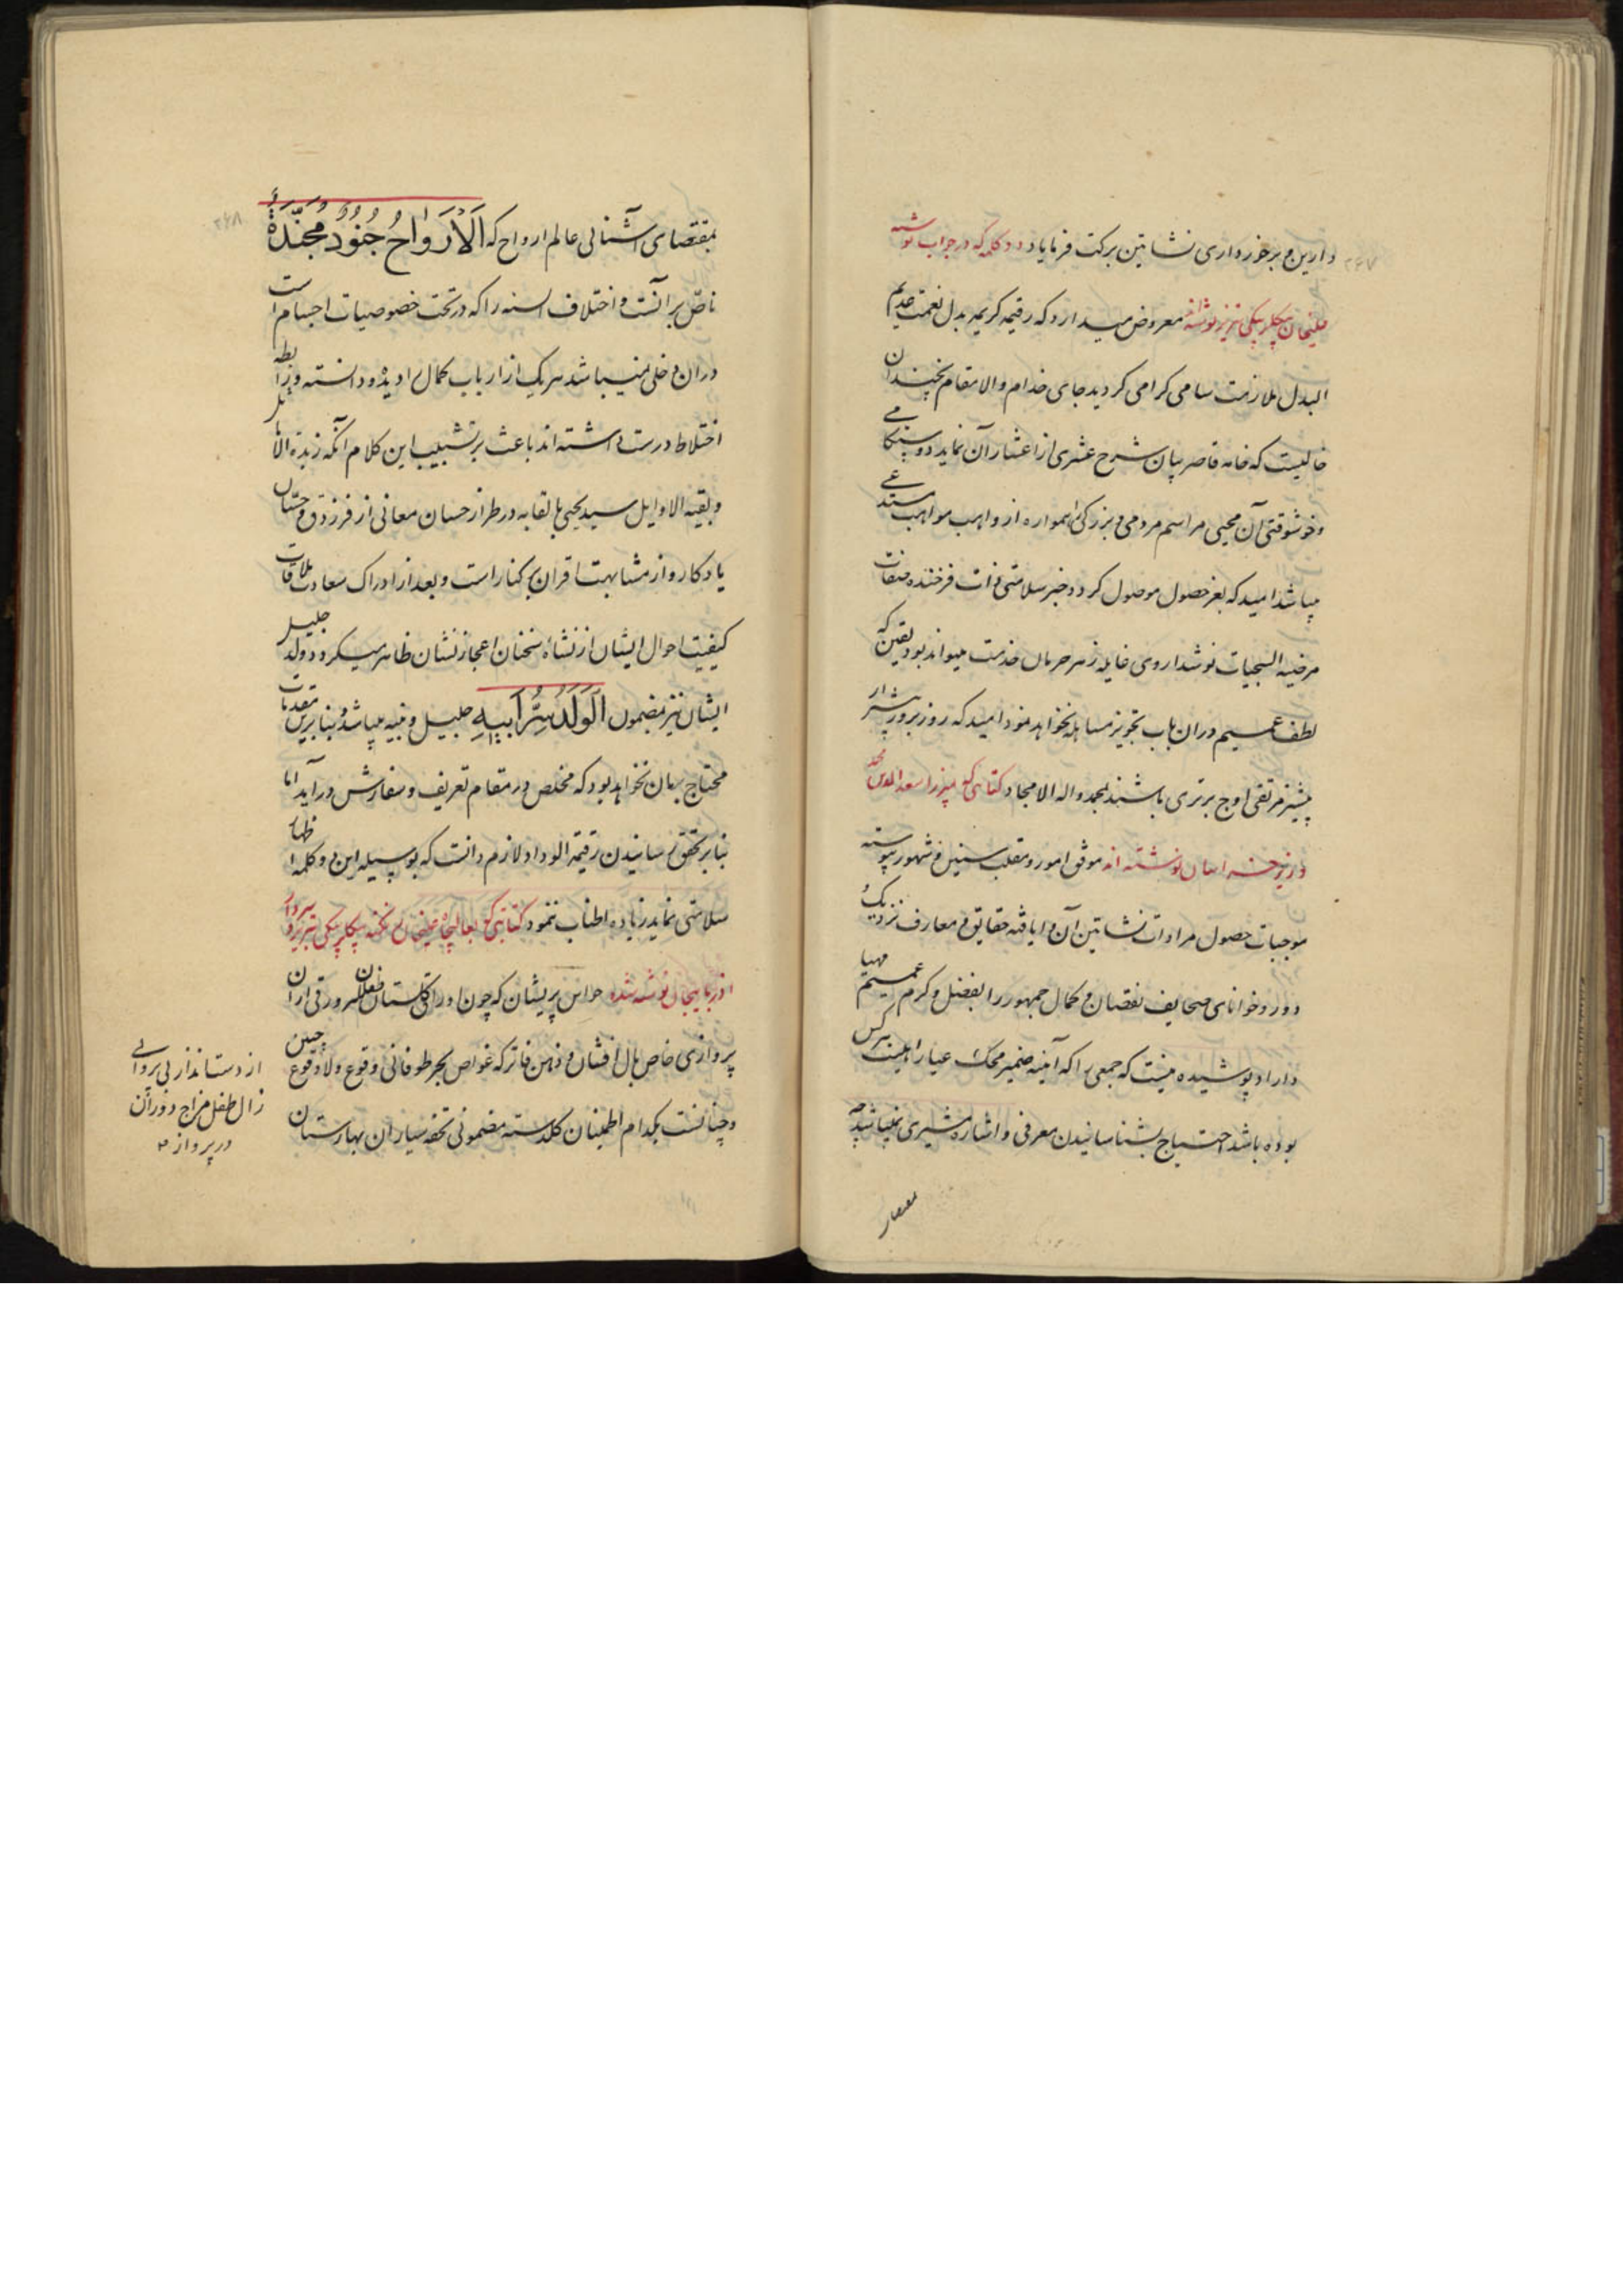 ۲۶۷
دارین و برخورداری نشاتین برکت فرمایاد دو کلمه که در جواب نوشته
بیکلربیکی تبریز نوشته معروض میدارد که رقیمه کریمه بدل نعمت عدیم
البدل ملازمت سامی کرامی کردید جای خدام والامقام بچندان
خالیست که خامه قاصر بیان شرح عشری از اعشار آن نماید دوستکامی
و خوشوقتی آن محیی مراسم مردمی و بزرکی را همواره از واهب مواهب مستدعی
میباشد امید که بعز حصول موصول کردد خبر سلامتی ذات فرخنده صفات
مرضیه السجیات نوشداروی غایله زهر حرمان خدمت میتواند بود یقین که
لطف عمیم دران باب تجویز مساهله نخواهد نمود امید که روز بروز بیشتر از
پیشتر مرتقی اوج برتری باشند بمحمد واله الامجاد کتابتی که بمیرزا سعدالدین محمد
وزیر خراسان نوشته اند موفق امور و مقلب سنین و شهور پیوسته
موجبات حصول مرادات نشاتین آن دریافته حقایق و معارف نزدیک
و دور و خوانای صحایف نقصان و کمال جمهور را بفضل و کرم عمیم مهیا
داراد پوشیده نیست که جمعی را که آینه ضمیر محک عیار اهلیت هرکس
بوده باشد احتیاج بشناسانیدن معرفی و اشاره مشیری نمیباشد چه
بمقتضای
۲۶۸
بمقتضای آشنائی عالم ارواح که اَلْاَرْواحُ جُنُودٌ مُجَنَّدَةٌ
ناص بر آنست و اختلاف السنه را که در تحت خصوصیات اجسام است
دران دخلی نمیباشد هر یک از ارباب کمال را دیده و دانسته و رابطه
اختلاط درست داشته اند باعث بر تشبیب این کلام آنکه زبدة الاماثل
و بقیة الاوایل سید یحیی بالقابه در طراز حسان معانی از فرزدق و حسان
یادکار و از مشابهت اقران بر کنار است و بعد از ادراک سعادت ملاقات
کیفیت احوال ایشان از نشاه سخنان اعجاز نشان ظاهر میکردد و ولد جلیل
ایشان نیز بمضمون اَلْوَلَدُ سِرُّ اَبیهِ جلیل و نبیه میباشد بنابرین مقدمات
محتاج بدان نخواهد بود که مخلص در مقام تعریف و سفارش در آید اما
بنابر تحقق رسانیدن رقیمة الوداد لازم دانست که بوسیله این دو کلمه اظهار
سلامتی نماید زیاده اطناب ننمود کتابتی که بعالیجاه بیکلربیکی تبریز و سردار
اذربایجان نوشته شده حواس پریشان که چون اوراق کلستان خزان
پروازی خاص بال افشان و ذهن فاتر که غواص بحر طوفانی وقوع ولاوقوع چنین
و چنانست بکدام اطمینان کلدسته مضمونی تحفه سیاران بهارستان
از دست انداز بی پروائی
زال طفل مزاج دوران
در پرواز